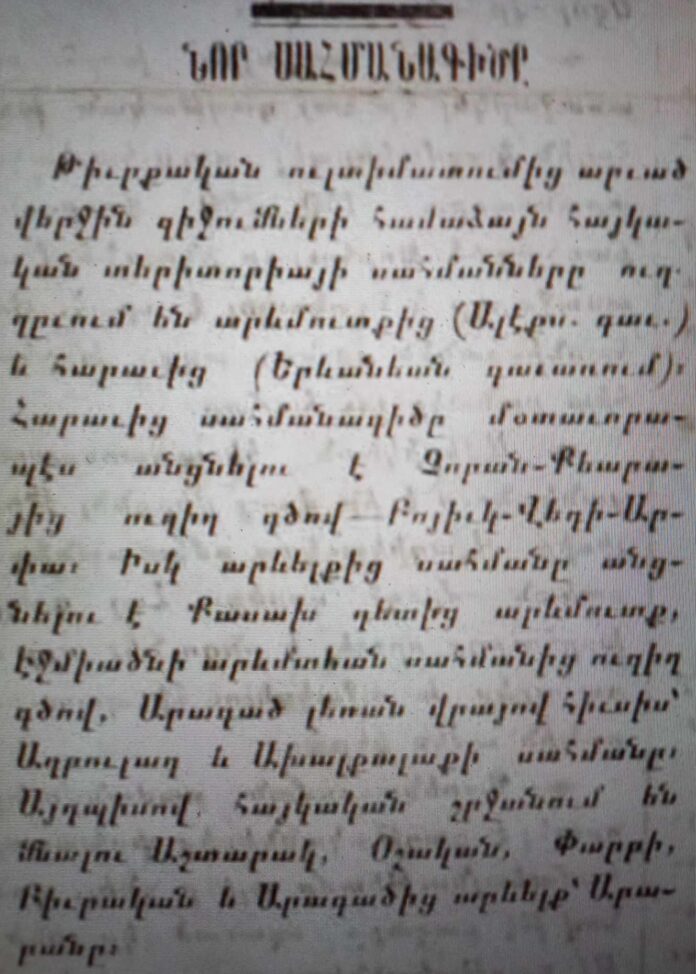 ՆՈՐ ՍԱՀՄԱՆԱԳԻԾԸ
Թիւրքական ուլտիմատումից արւած
վերջին զիջումների համաձայն հայկա-
կան տերիտորիայի սահմանները ուղ-
ղըւում են արեմուտքից (Ալէքս. գաւ.)
և հարաւից (Երևանեան գաւառում)։
Հարաւից սահմանագիծը մօտաւորա-
պէս անցնելու է Չորան-Քեարա-
յից ուղիղ գծով—Բոյիւկ-Վեդի-Ար-
փա։ Իսկ արևելքից սահմանը անց-
նելու է Քասախ գետից արեմուտք,
Էջմիածնի արևմտեան սահմանից ուղիղ
գծով, Արագած լեռան վրայով հիւսիս՝
Աղբուլաղ և Ախալքալաքի սահմանը։
Այդպիսով հայկական շրջանում են
մնալու Աշտարակ, Օշական, Փարբի,
Բիւրական և Արագածից արևելք՝ Ապա-
րանը։